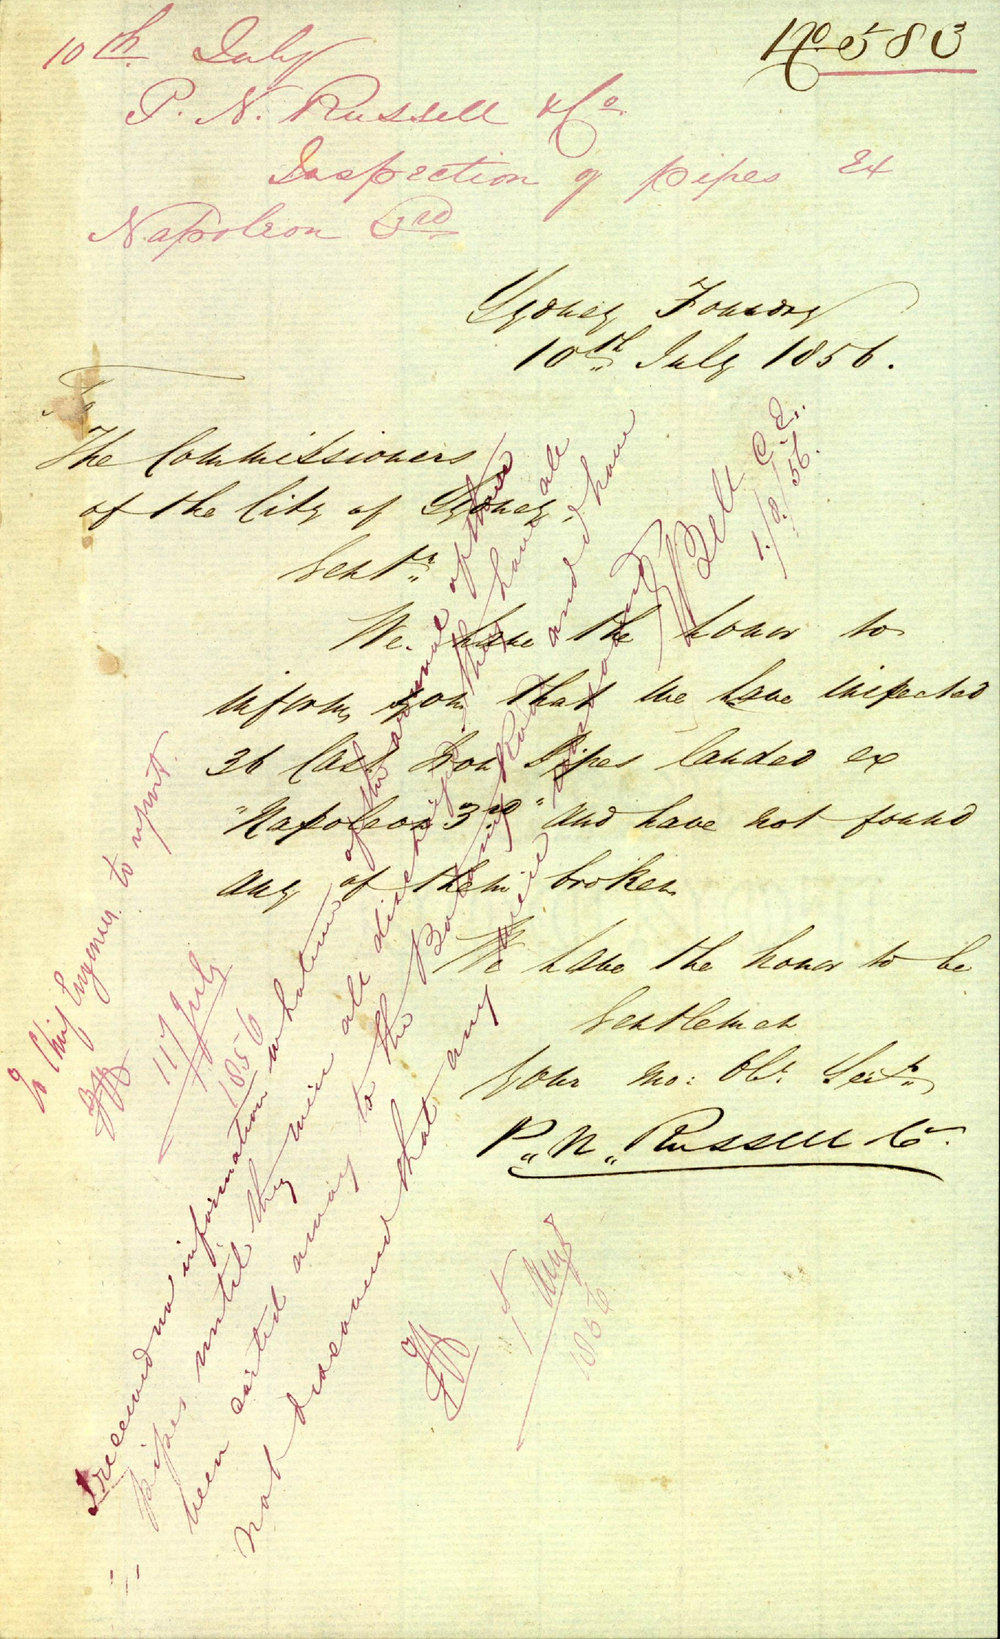 No 583
10th July
P. N. Russell & Co
Inspection of pipes Ex
Napoleon 3rd
Sydney Foundry
10th July 1856.
To
The Commissioners
of the City of Sydney,
Gentn
We have the honor to
inform you that we have inspected
36 Cast Iron Pipes landed ex
"Napoleon 3rd" and have not found
any of them broken
We have the honor to be
Gentlemen
Your mo: Obt. Servts
P. N. Russell Co
To Chief Engineer to report.
11 July
1856
I received no information whatever of the arrival of these
pipes until they were all discharged they have all
been carted away to the Botany Road and I have
not discovered that any were
Bell C.E.
1/8/56.
1 Augt
1856